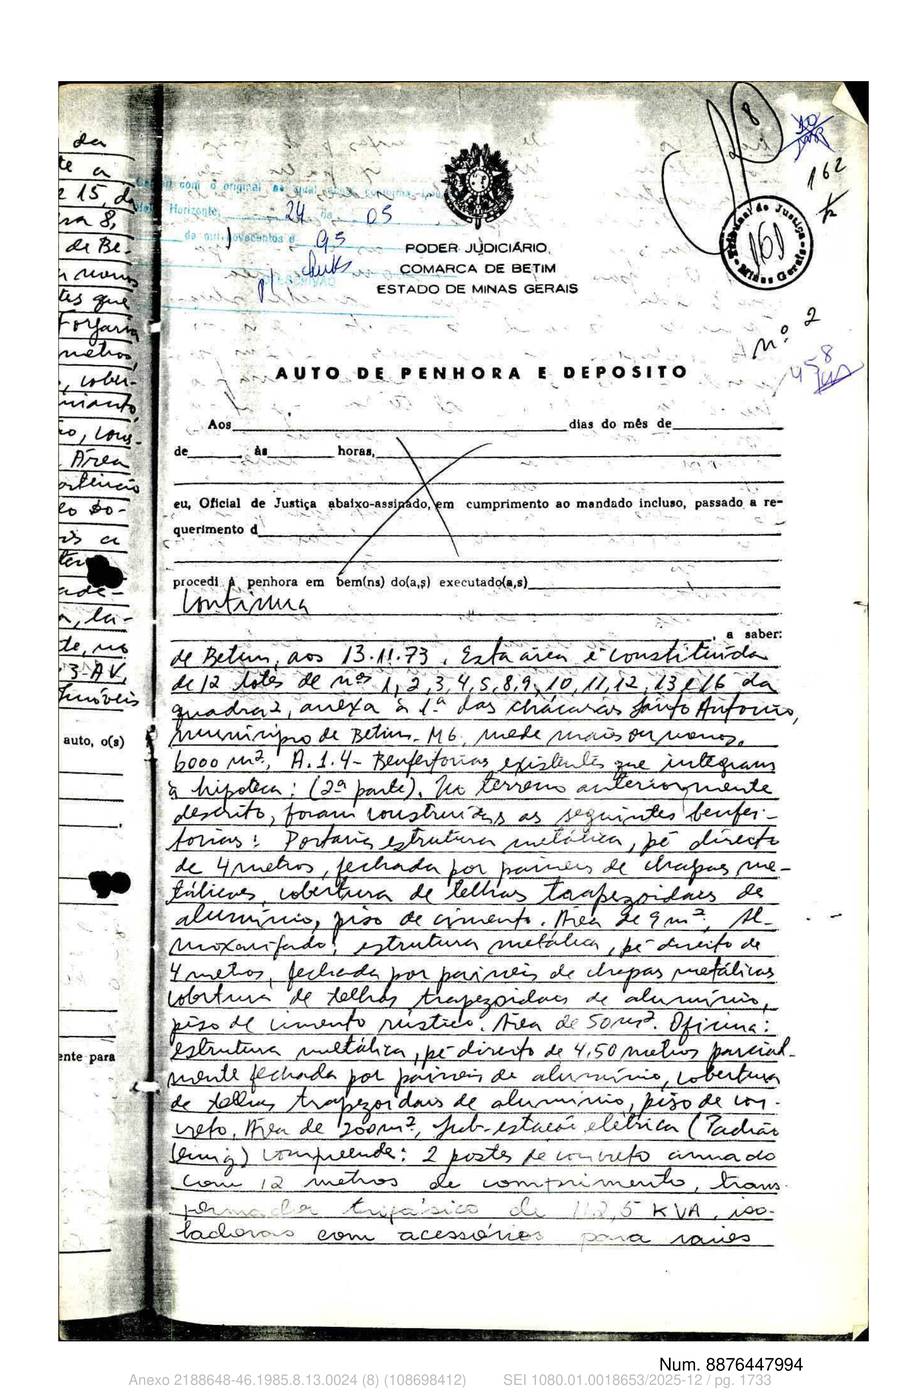 da
te a
e 15, da
sa 8,
de Be-
n menos
tes que
Forjaria
metros,
, cober-
Área
a, la-
te, no
3-AV,
Imóveis
auto, o(s)
ente para
com o original
Horizonte, 24 de 05
de mil novecentos e 95
8
162
Tribunal de Justiça
161
Minas Gerais
PODER JUDICIÁRIO
COMARCA DE BETIM
ESTADO DE MINAS GERAIS
nº 2
458
AUTO DE PENHORA E DEPOSITO
Aos dias do mês de
de às horas,
eu, Oficial de Justiça abaixo-assinado, em cumprimento ao mandado incluso, passado a re-
querimento d
procedi à penhora em bem(ns) do(a,s) executado(a,s)
Continua
, a saber:
de Betim, aos 13.11.73. Esta área é constituida
de 12 lotes de nºs 1, 2, 3, 4, 5, 8, 9, 10, 11, 12, 13 e 16 da
quadra 2, anexa à 1ª das chácaras Santo Antonio,
município de Betim-MG, mede mais ou menos,
6000 m², A.1.4- Benfeitorias existentes que integram
à hipoteca: (2ª parte). No terreno anteriormente
descrito, foram construidas as seguintes benfei-
torias: Portaria estrutura metálica, pé direito
de 4 metros, fechada por paineis de chapas me-
tálicas, cobertura de telhas trapezoidais de
alumínio, piso de cimento. Área de 9 m², Al-
moxarifado: estrutura metálica, pé direito de
4 metros, fechada por paineis de chapas metálicas
cobertura de telhas trapezoidais de alumínio,
piso de cimento rústico. Área de 50 m². Oficina:
estrutura metálica, pé-direito de 4,50 metros parcial-
mente fechada por paineis de alumínio, cobertura
de telhas trapezoidais de alumínio, piso de con-
creto. Área de 200 m², Sub-estação elétrica (Padrão
Cemig) compreende: 2 postes de concreto armado
com 12 metros de comprimento, trans-
formador trifásico de 112,5 KVA, iso-
ladores com acessórios para
Num. 8876447994
Anexo 2188648-46.1985.8.13.0024 (8) (108698412) SEI 1080.01.0018653/2025-12 / pg. 1733